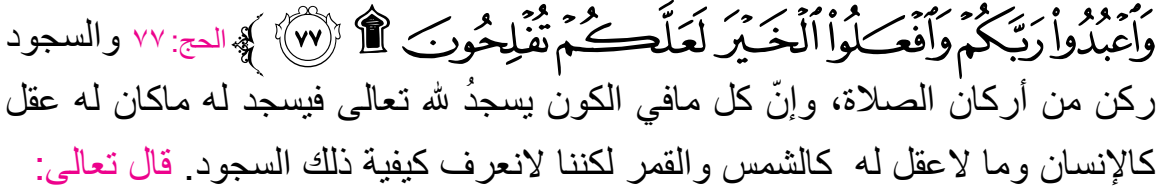 وَٱعْبُدُوا۟ رَبَّكُمْ وَٱفْعَلُوا۟ ٱلْخَيْرَ لَعَلَّكُمْ تُفْلِحُونَ ۩ ﴿٧٧﴾ ﴾ الحج: ٧٧ والسجود
ركن من أركان الصلاة، وإنّ كل مافي الكون يسجدُ لله تعالى فيسجد له ماكان له عقل
كالإنسان وما لاعقل له كالشمس والقمر لكننا لانعرف كيفية ذلك السجود. قال تعالى: